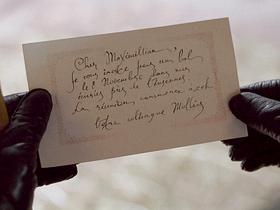 Cher Maximillien,
je vous invite pour un bal
le 1 Novembre dans mes
près de Lausanne.
La réunion commence à 20h
Votre collègue